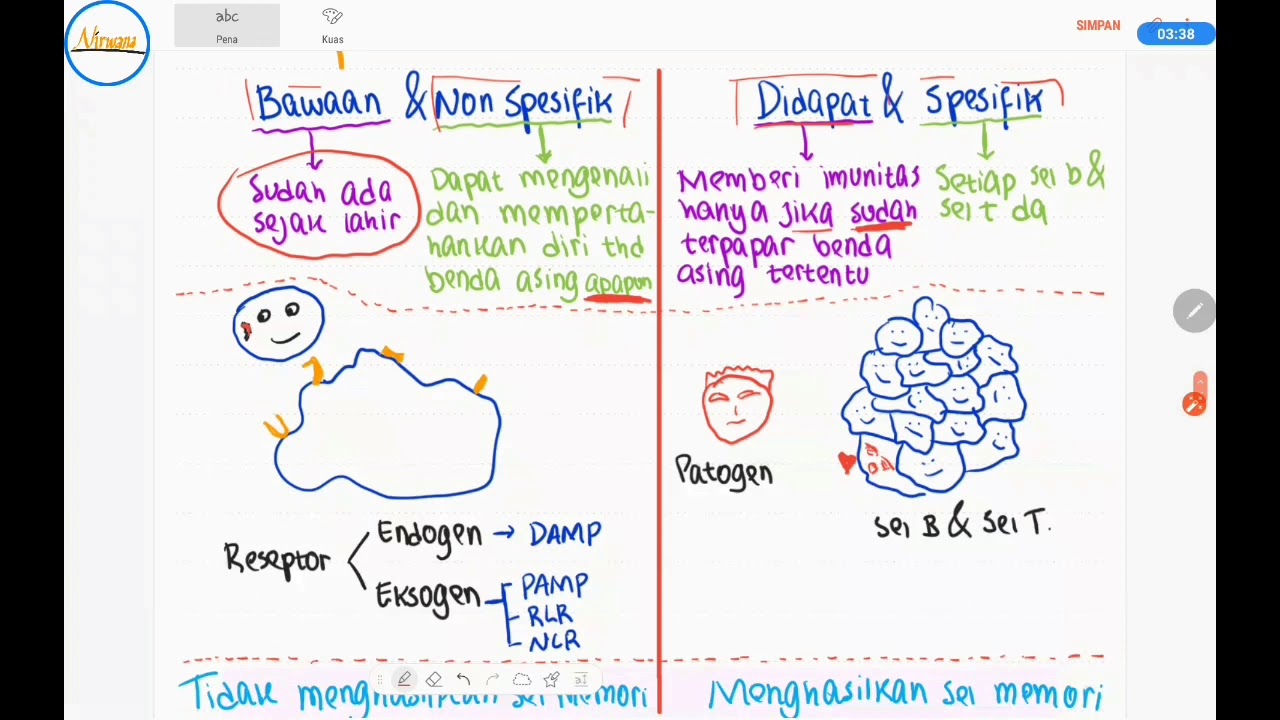 Nirwana
abc
Pena
Kuas
SIMPAN
03:38
Bawaan & Non Spesifik
Didapat & Spesifik
Sudah ada
sejak lahir
Dapat mengenali
dan memperta-
hankan diri thd
benda asing apapun
Memberi imunitas
hanya jika sudah
terpapar benda
asing tertentu
Setiap sel b &
sel t da
Patogen
Sel B & Sel T.
Reseptor
Endogen → DAMP
Eksogen
PAMP
RLR
NLR
Tidak menghasilkan sel memori
Menghasilkan sel memori